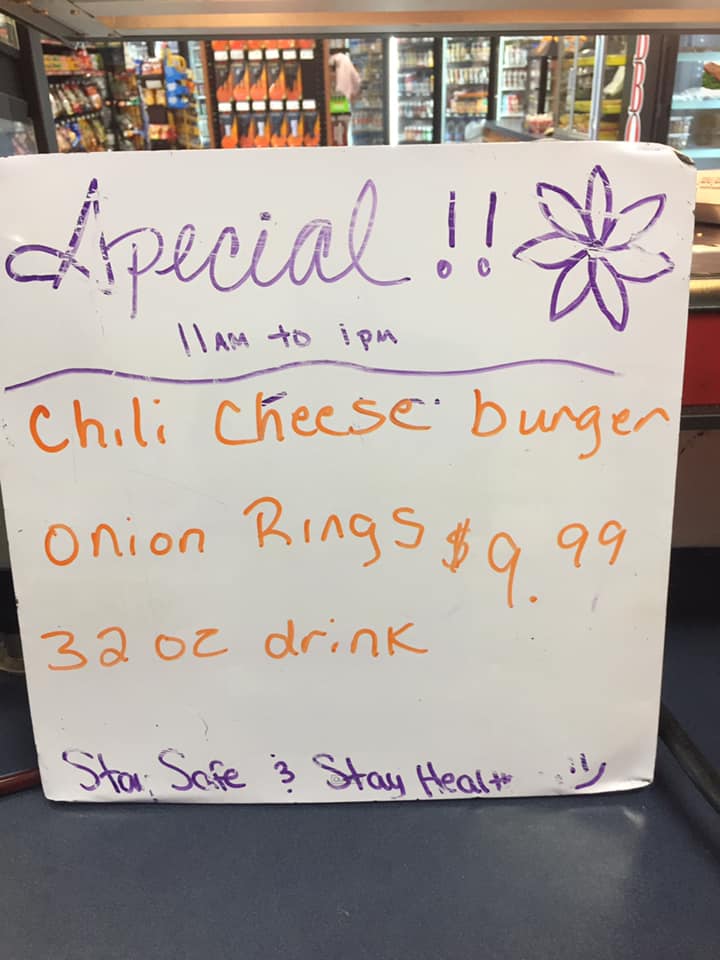 Special !!
11AM to 1PM
Chili Cheese burger
Onion Rings $9.99
32 oz drink
Stay Safe & Stay Health :)